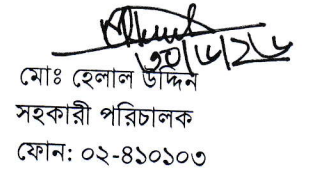 ৩০/৬/২৬
মোঃ হেলাল উদ্দিন
সহকারী পরিচালক
ফোন: ০২-৪১০১০৩